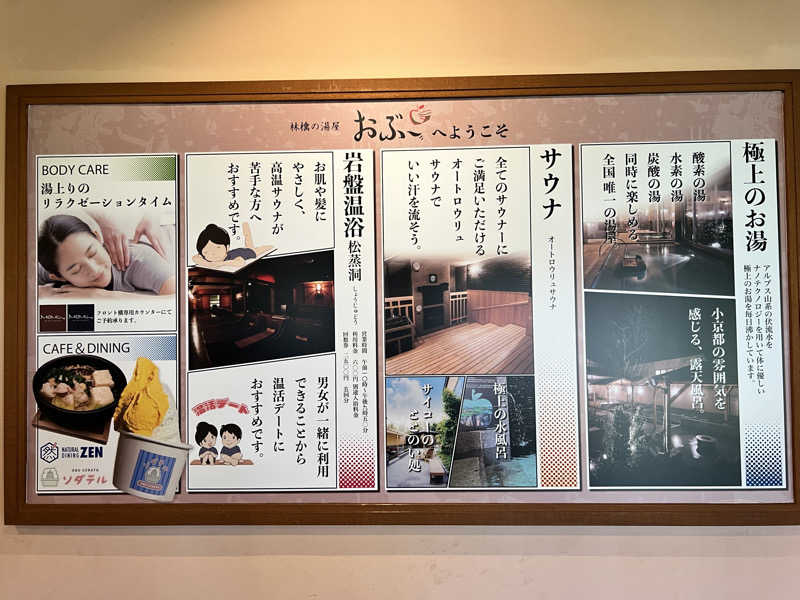 林檎の湯屋 おぶ～ へようこそ
極上のお湯
アルプス山系の伏流水を
ナノテクノロジーを用いて体に優しい
極上のお湯を毎日沸かしています。
酸素の湯
水素の湯
炭酸の湯
同時に楽しめる
全国唯一の湯屋
小京都の雰囲気を
感じる、露天風呂。
サウナ
オートロウリュサウナ
全てのサウナーに
ご満足いただける
オートロウリュ
サウナで
いい汗を流そう。
極上の水風呂
サイコーの
ととのい処
岩盤温浴 松蒸洞
しょうじゅどう
お肌や髪に
やさしく、
高温サウナが
苦手な方へ
おすすめです。
温活デート
男女が一緒に利用
できることから
温活デートに
おすすめです。
BODY CARE
湯上りの
リラクゼーションタイム
フロント横専用カウンターにて
ご予約承ります。
CAFE & DINING
NATURAL
DINING ZEN
ソダテル